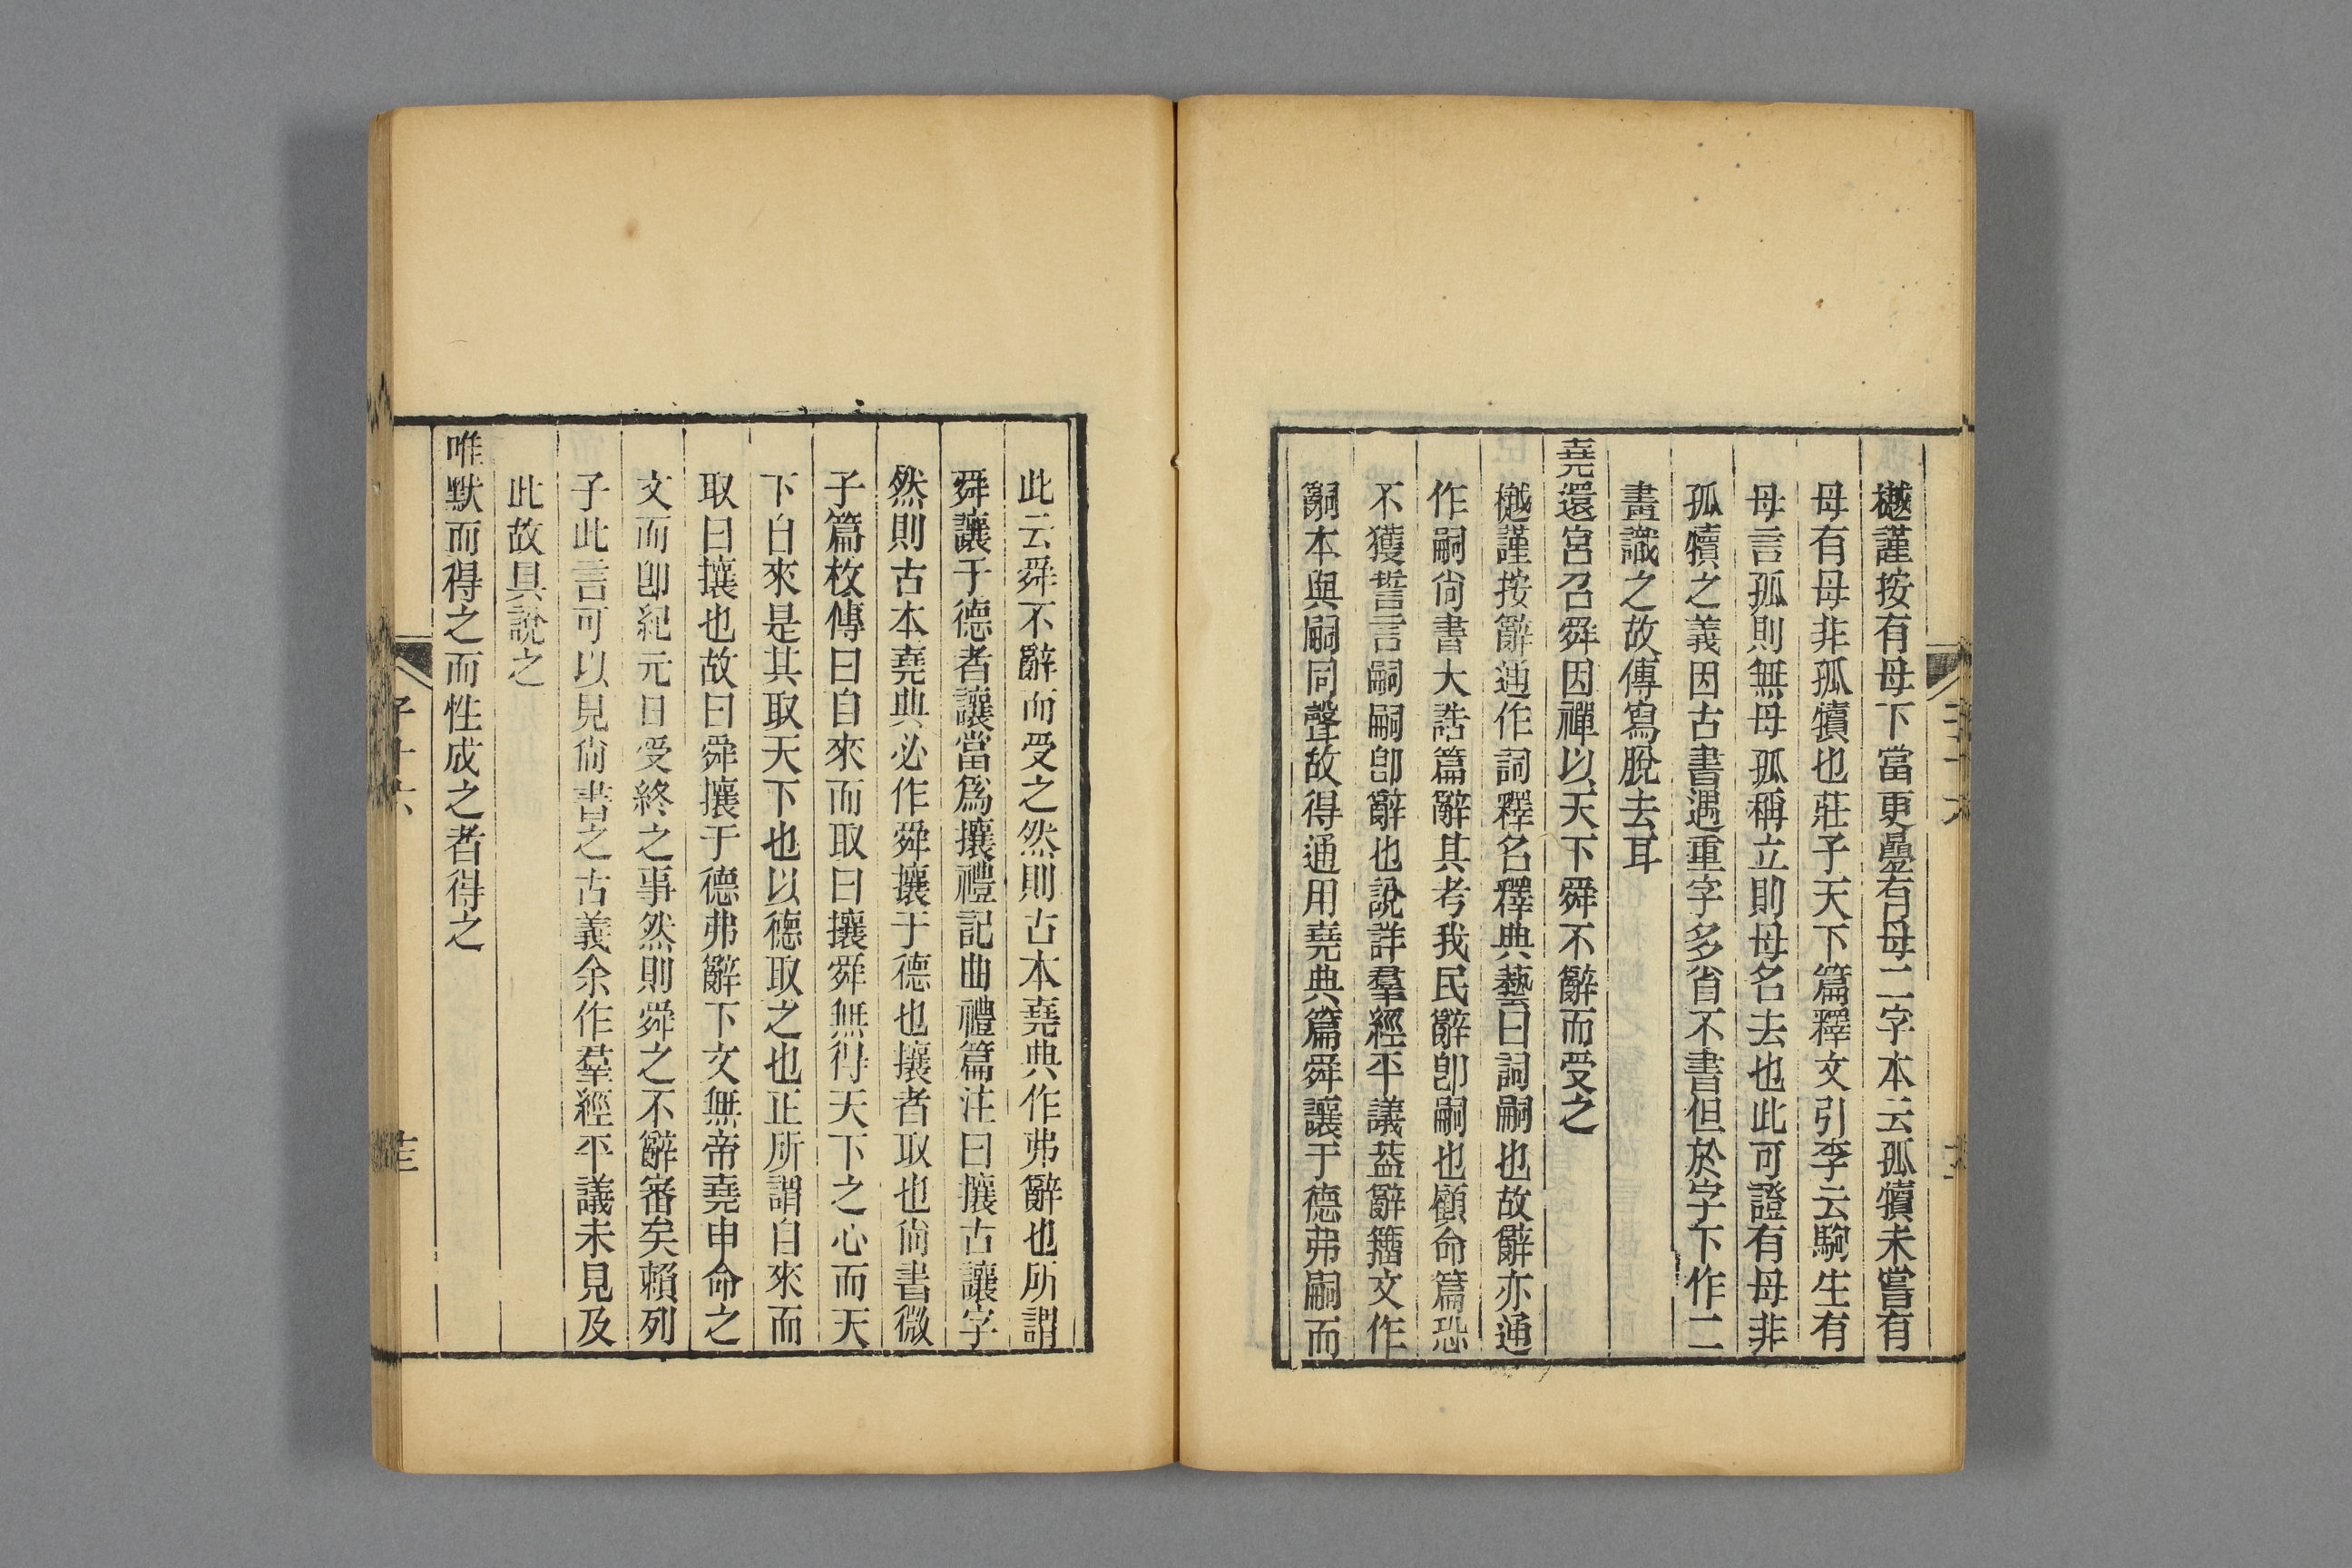 樾謹按有母下當更曡有母二字本云孤犢未嘗有
母有母非孤犢也莊子天下篇釋文引李云駒生有
母言孤則無母孤稱立則母名去也此可證有母非
孤犢之義因古書遇重字多省不書但於字下作二
畫識之故傳寫脫去耳
堯還宮召舜因禪以天下舜不辭而受之
樾謹按辭通作詞釋名釋典藝曰詞嗣也故辭亦通
作嗣尙書大誥篇辭其考我民辭卽嗣也顧命篇恐
不獲誓言嗣嗣卽辭也說詳羣經平議葢辭籒文作
嗣本與嗣同聲故得通用堯典篇舜讓于德弗嗣而
此云舜不辭而受之然則古本堯典作弗辭也所謂
舜讓于德者讓當爲攘禮記曲禮篇注曰攘古讓字
然則古本堯典必作舜攘于德也攘者取也尙書微
子篇枚傳曰自來而取曰攘舜無得天下之心而天
下自來是其取天下也以德取之也正所謂自來而
取曰攘也故曰舜攘于德弗辭下文無帝堯申命之
文而卽紀元日受終之事然則舜之不辭審矣賴列
子此言可以見尙書之古義余作羣經平議未見及
此故具說之
唯默而得之而性成之者得之
子十六